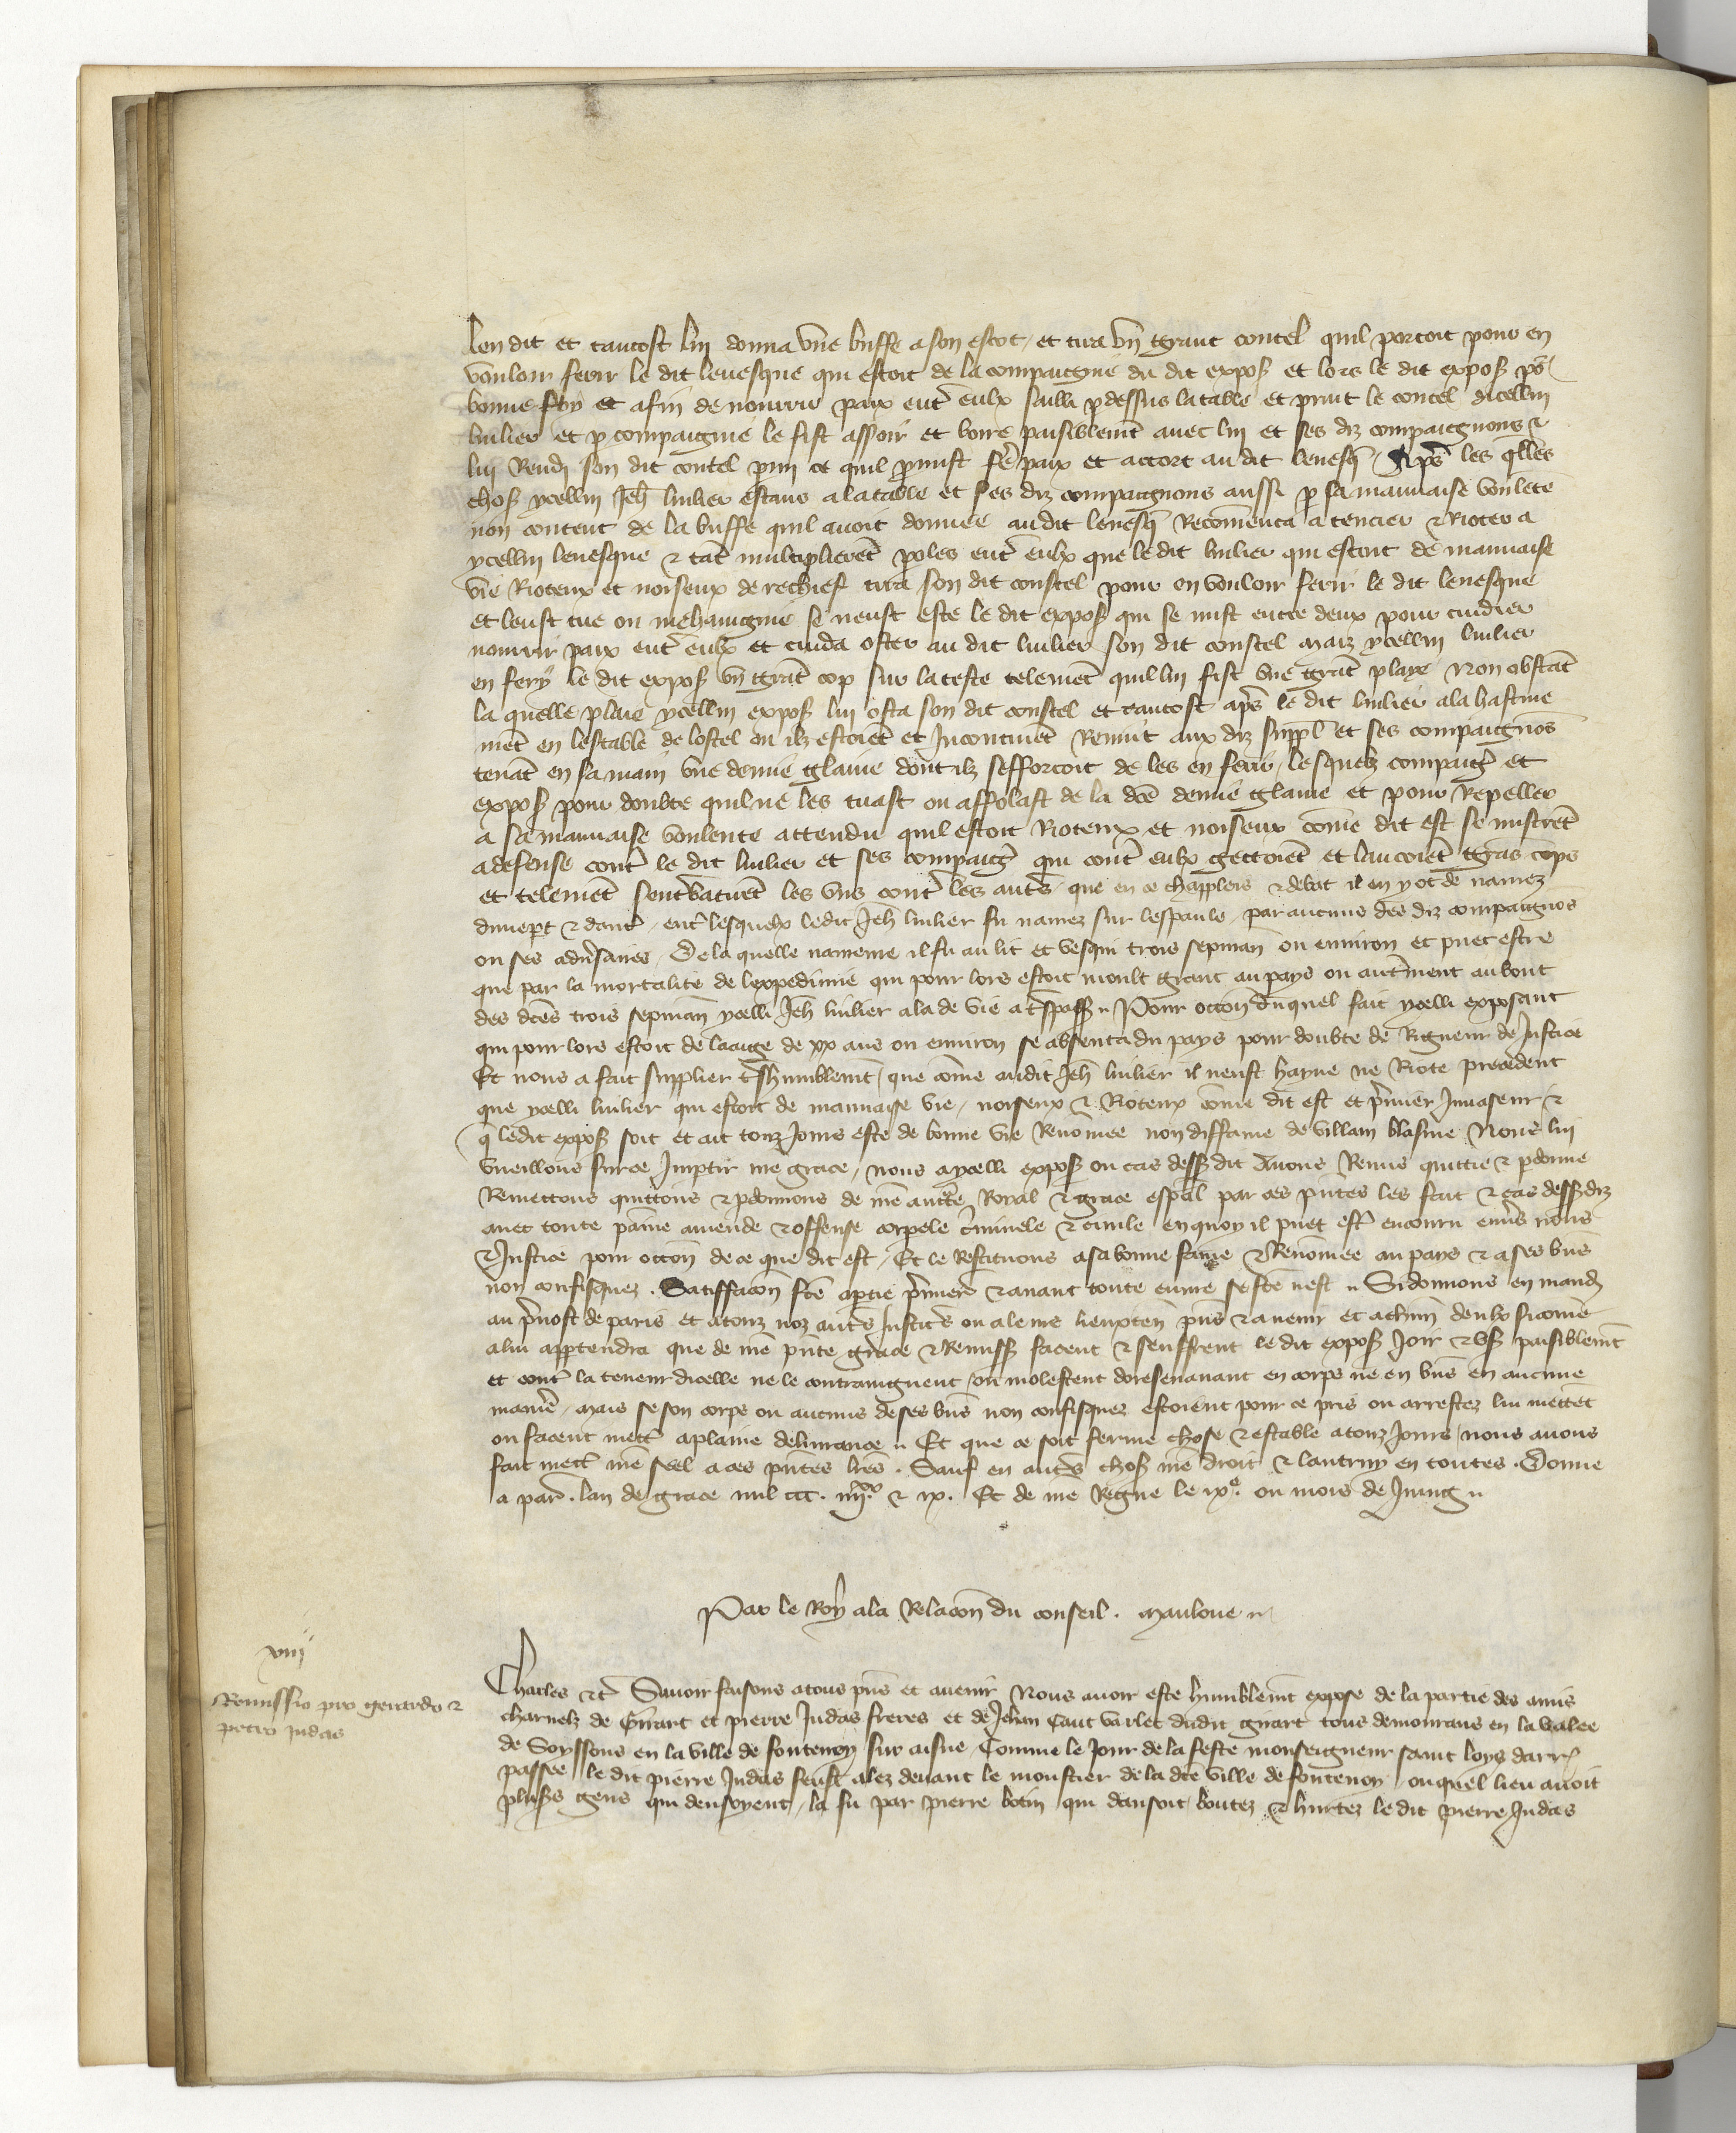 len dit et tantost lui donna vne buffe a son escot, et tira vn grant coutel quil portoit pour en
vouloir ferir le dit leuesque qui estoit de la compaignie du dit expos et lors le dit expos
bonne foy et afin de nourrir paix entr eulx sailli p dessus la table et print le coutel dicellui
luilier et p compaignie le fist assoir et boire paisiblemt auec lui et ses diz compaignons &
lui Rendi son dit coutel pmi ce quil pmist fe paix et accort au dit leuesq, Aps les qlles
chos ycellui Jeh luilier estans a la table et ses diz compaignons aussi p sa mauuaise voulete
non content de la buffe quil auoit donnee audit leuesq Recomenca a tencier & Rioter a
ycellui leuesque & tat multiplieret poles entr eulx que le dit luilier qui estoit de mauuaise
vie Rioteux et noiseux de rechief tira son dit coustel pour en vouloir ferir le dit leuesque
et leust tue ou mehaingnie se neust este le dit expos qui se mist entre deux pour cuidier
nourrir paix entr eulx et cuida oster au dit luilier son dit coustel maiz ycellui luilier
en fery le dit expos vn grat cop sur la teste telemet quil lui fist vne grat playe Non obstat
la quelle plaie ycellui expos lui osta son dit coustel et tantost aps le dit luilier ala hastiue
met en lestable de lostel ou ilz estoiet et Incontinet Reuint aux diz suppl et ses compaignos
tenat en sa main vne demie glaiue dont ilz sefforcoit de les en ferir, lesquelz compaig et
expos pour doubte quil ne les tuast ou affolast de la dce demie glaiue et pour Repeller
a sa mauuaise voulente attendu quil estoit Rioteux et noiseux come dit est se mistret
a defense contr le dit luilier et ses compaig qui contr eulx gettoiet et lancoiet gras cops
et telemet sentrebatiret les vns contr les autrs, que en ce chapplers & debat il en y ot de naurez
dune pt & dautr, entr lesquelx ledit Jeh luilier fu naurez sur lespaule, par aucuns des diz compaignos
ou ses adusaires, De la quelle naureure il fu au lit et vesqui trois sepman ou enuiron et puet estre
que par la mortalite de lexpedimie qui pour lors estoit moult grant au pays ou autrment au bout
des dces trois sepman ycelli Jeh luilier ala de vie a tspass Pour occon duquel fait ycelli exposant
qui pour lors estoit de laaige de xx ans ou enuiron se absenta du pays pour doubte de Rigueur de Justice
Et nous a fait supplier tshumblemt, que come audit Jeh luilier il neust hayne ne Riote precedent
que ycelli luilier qui estoit de mauuaise vie, noiseux & Rioteux come dit est et pmier Inuaseur &
q ledit expos soit et ait touz Jours este de bonne vie Renomee non diffame de villain blasme Nous lui
vueillons sur ce Imptir nre grace, nous a ycelli expos ou cas dessdit Auons Remis quittie & pdonne
Remettons quittons & pdonnons de nre auctte Royal & grace espal par ces pntes les fait & cas dessdiz
auec toute paine amende & offense corpele cminele & ciuile en quoy il puet estr encouru enuers nous
& Justice pour occon de ce que dit est, Et le Restituons a sa bonne fame & Renomee au pays & a ses bns
non confisquez. Satiffacon fce aptie pmier & auant toute euure se fce nest Si donnons en mand
au preuost de paris et a touz noz autrs Justices ou a leurs lieuxten pns & auenir et a chun deulx si come
a lui apptendra que de nre pnte grace & Remiss facent & seuffrent le dit expos Joir & vs paisiblemt
et contr la teneur dicelle ne le contraingnent ou molestent doresenauant en corps ne en bns en aucune
manie, mais se son corps ou aucuns de ses bns non confisquez estoient pour ce pris ou arrestez lui mettet
ou facent mettr a plaine deliurance Et que ce soit ferme chose & estable a touz Jours nous auons
fait mettr nre seel a ces pntes lres. Sauf en autrs chos nre droit & lautruy en toutes. Donne
a par. lan de grace mil ccc. iiijxx & ix. Et de nre Regne le ixe. ou mois de Juing

Par le Roy a la Relacon du conseil. Mauloue

xiiij
Remissio pro gerardo &
petro Judas

Charles &c Sauoir faisons a tous pns et auenir Nous auoir este humblemt expose de la partie des amis
charnelz de Girart et pierre Judas freres et de Jehan Caut varlet dudit girart tous demourans en la valee
de Soyssons en la ville de fontenoy sur aisne, Comme le Jour de la feste monseigneur saint loys darr
passee le dit pierre Judas feust alez deuant le moustier de la dce ville de fontenoy, ouquel lieu auoit
pluss gens qui densoyent, la fu par pierre botin qui dansoit boutez & hurtez le dit pierre Judas